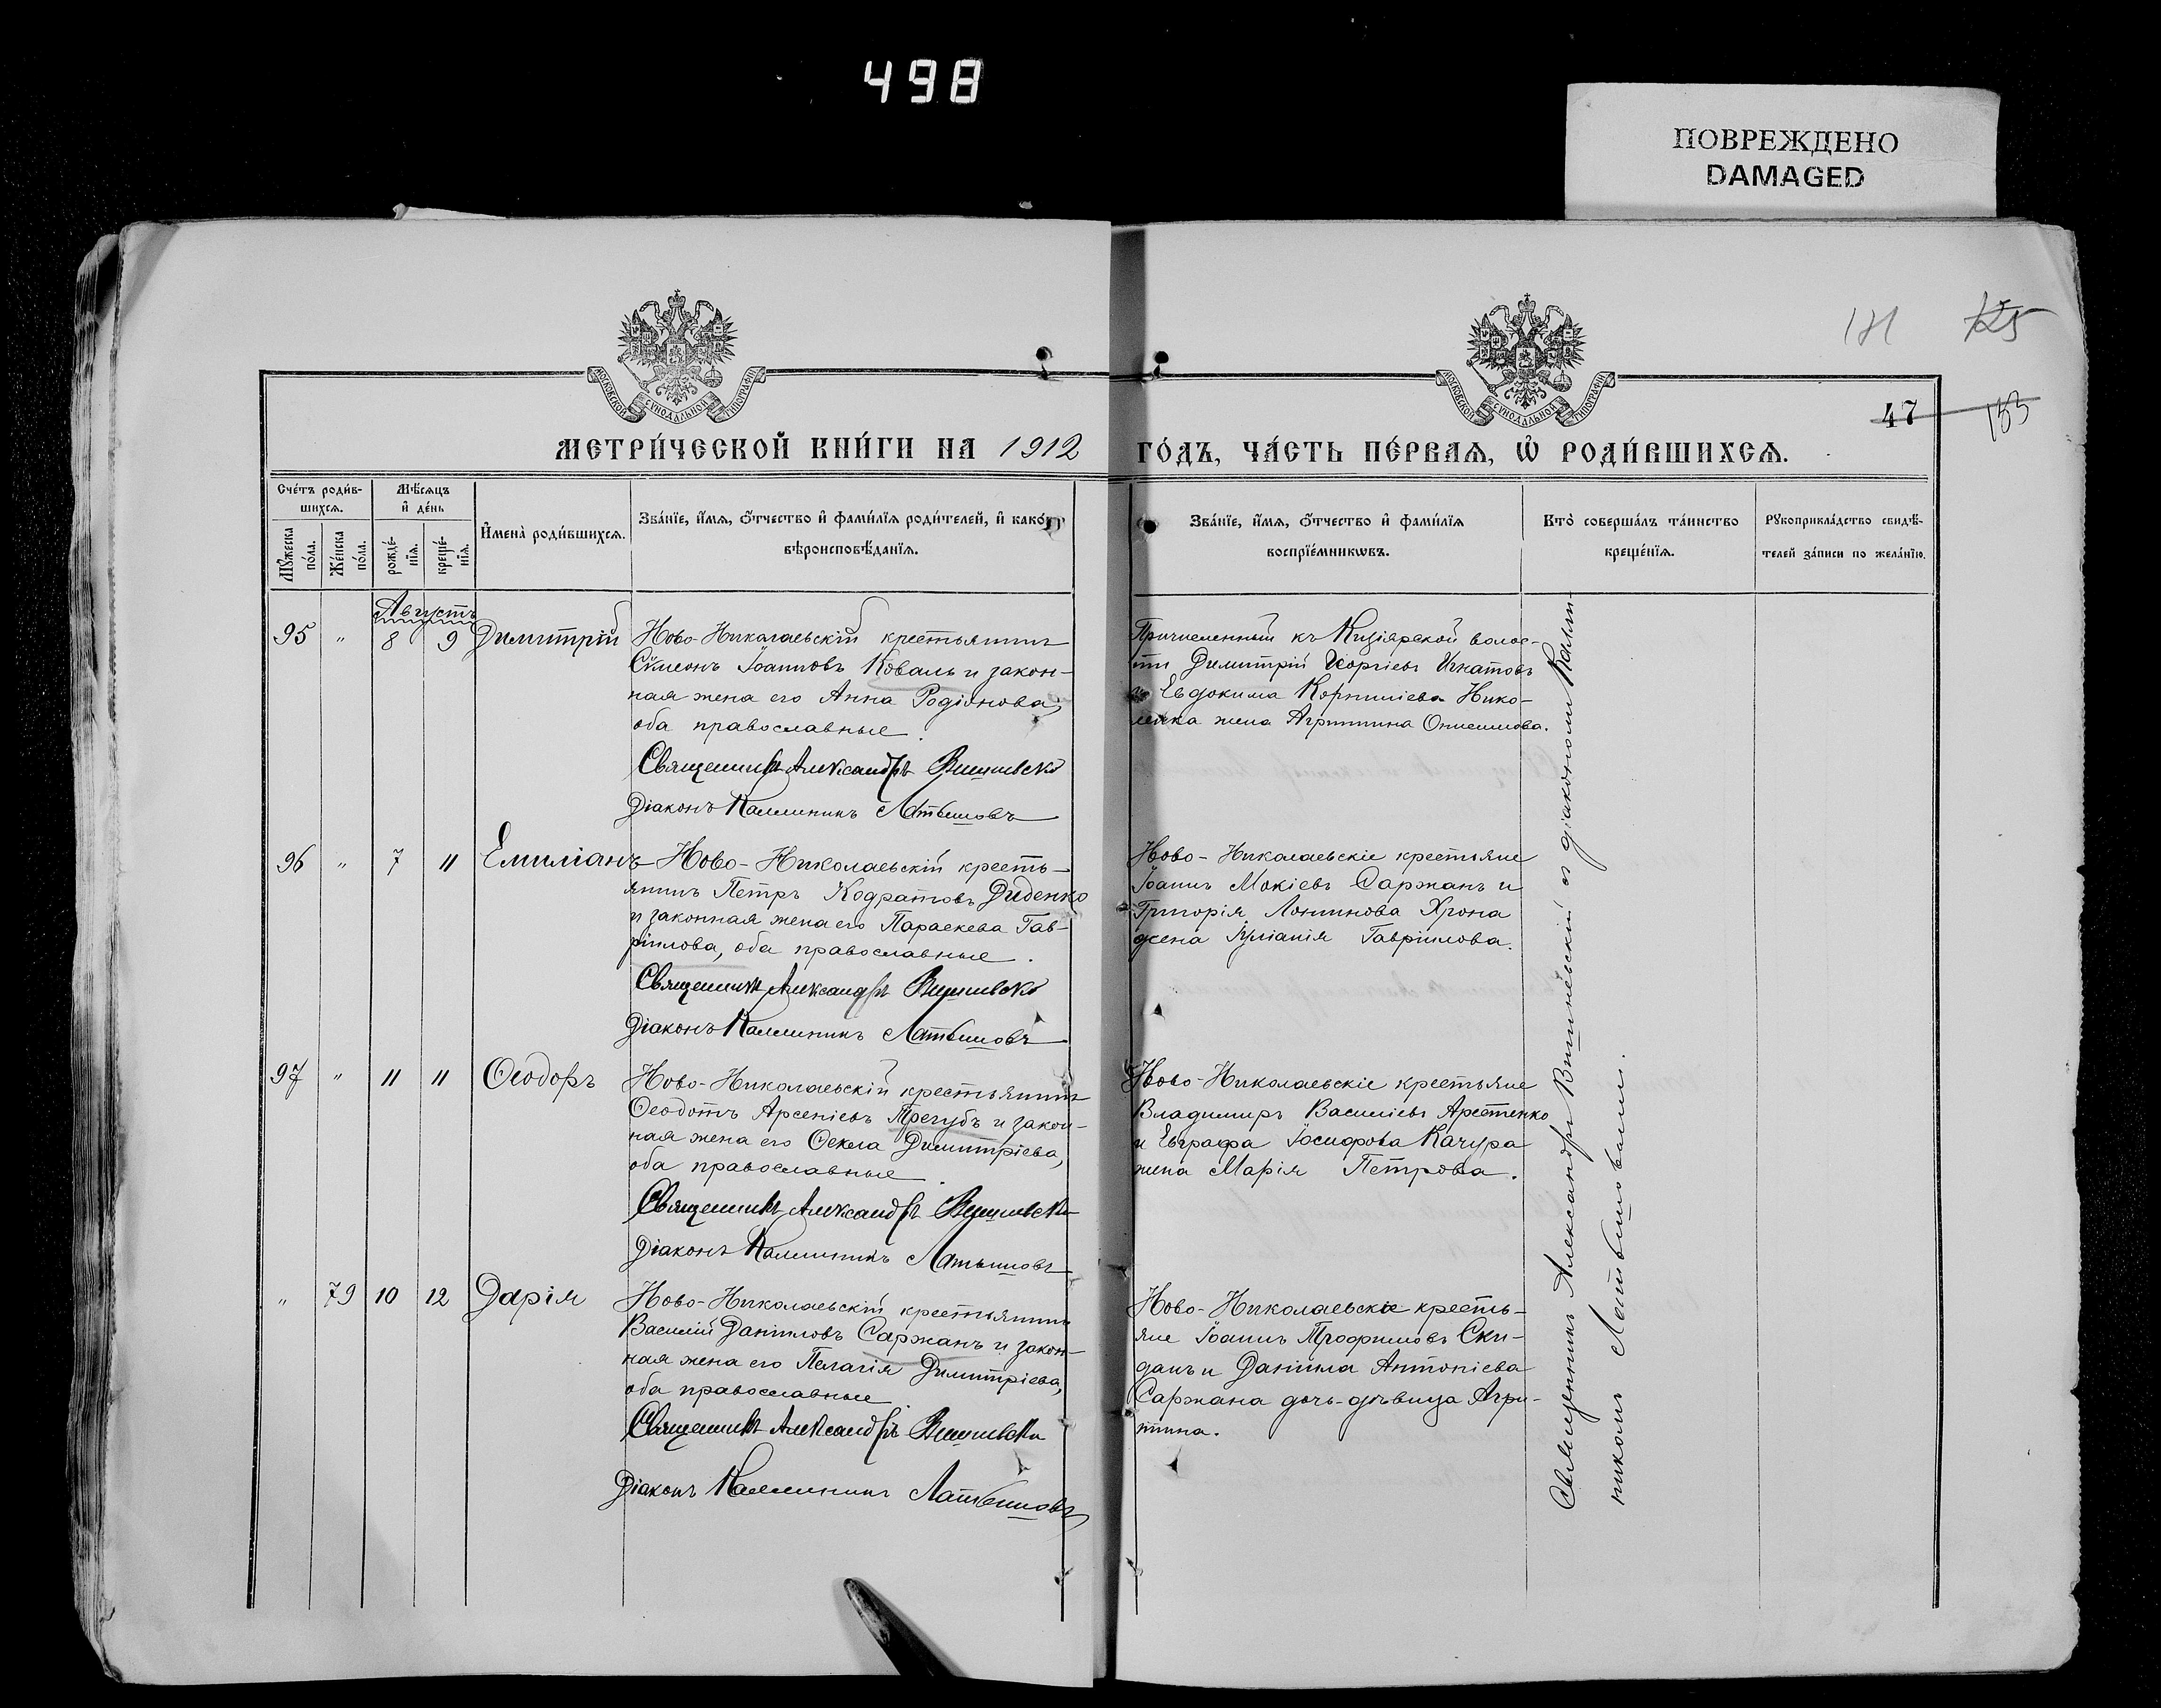 498
ПОВРЕЖДЕНО
DAMAGED
МОСКОВСКОЙ СѴНОДАЛЬНОЙ ТИПОГРАФІИ
МОСКОВСКОЙ СѴНОДАЛЬНОЙ ТИПОГРАФІИ
181
125
47
133
МЕТРИ́ЧЕСКОЙ КНИ́ГИ НА 1912
ГО́ДЪ, ЧА́СТЬ ПЕ́РВАѦ, Ѡ҆ РОДИ́ВШИХСѦ.
Сче́тъ роди́в-
шихсѧ.
Мꙋ́жеска по́ла.
Же́нска по́ла.
Мѣ́сѧцъ
и҆ де́нь
рожде́-
нїѧ.
креще́-
нїѧ.
И҆мена̀ роди́вшихсѧ.
Зва́нїе, и҆́мѧ, ѻ҆́тчество и҆ фами́лїѧ роди́телей, и҆ како́гѡ
вѣроисповѣ́данїѧ.
Зва́нїе, и҆́мѧ, ѻ҆́тчество и҆ фами́лїѧ
воспрїе́мникѡвъ.
Кто̀ соверша́лъ та́инство
креще́нїѧ.
Рꙋкоприкла́дство свидѣ́-
телей за́писи по жела́нїю.
Августъ
95 " 8 9 Димитрій
Ново-Николаевскій крестьянинъ
Сѵмеонъ Іоанновъ Коваль и закон-
ная жена его Анна Родіонова,
оба православные.
Священникъ Александръ Вишневскі
Діаконъ Каллиникъ Латышовъ
Причисленный къ Кизіярской волос-
ти Димитрій Георгіевъ Игнатовъ
и Евдокима Корниліева Нико-
ленка жена Агриппина Онисимова.
96 " 7 11 Емиліанъ
Ново-Николаевскій кресть-
янинъ Петръ Кодратовъ Диденко
и законная жена его Параскева Гав-
ріилова, оба православные.
Священникъ Александръ Вишневскі
Діаконъ Каллиникъ Латышовъ
Ново-Николаевскіе крестьяне
Іоаннъ Мокіевъ Саржанъ и
Григорія Логинова Хрона
жена Іуліанія Гавріилова.
97 " 11 11 Ѳеодоръ
Ново-Николаевскій крестьянинъ
Ѳеодотъ Арсеніевъ Трегубъ и закон-
ная жена его Ѳекла Димитріева,
оба православные.
Священникъ Александръ Вишневскі
Діаконъ Каллиникъ Латышовъ
Ново-Николаевскіе крестьяне
Владимиръ Василіевъ Арестенко
и Евграфа Іосифова Качура
жена Марія Петрова.
" 79 10 12 Дарія
Ново-Николаевскій крестьянинъ
Василій Даніиловъ Саржанъ и закон-
ная жена его Пелагія Димитріева,
оба православные
Священникъ Александръ Вишневскі
Діаконъ Каллиникъ Латышовъ
Ново-Николаевскіе кресть-
яне Іоаннъ Трофимовъ Ски-
данъ и Даніила Антоніева
Саржана дочь-дѣвица Агри-
пина.
Священникъ Александръ Вишневскій съ діакономъ Калли-
никомъ Латышовымъ.